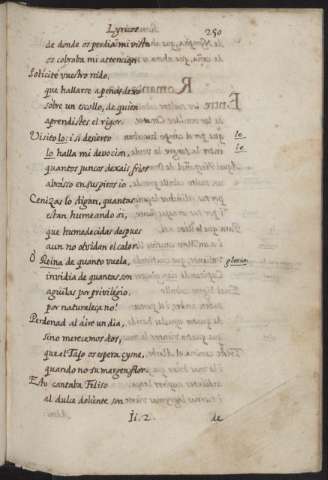 Lyricos 250
de donde os perdia mi vista
os cobraba mi attencion
Solicitè vuestro nido,
que hallarse apenas dexò
sobre un escollo, de quien
aprendistes el rigor.
Visitolo: i si desierto lo
lo halla mi devocion, le
quantos juncos dexais frios
abraso en suspiros io.
Cenizas lo digan, quantas
estan humeando oi,
que humedecidas despues
aun no olvidan el calor.
O Reina de quanto vuela, gloria
invidia de quantas son
aguilas por privilegio,
por naturaleza no!
Perdonad al aire un dia,
sino merecemos dos,
que al Tajo os espera cysne,
quando no su margen flor.
Esto cantaba Feliso
al dulce doliente son
Ii. 2. de